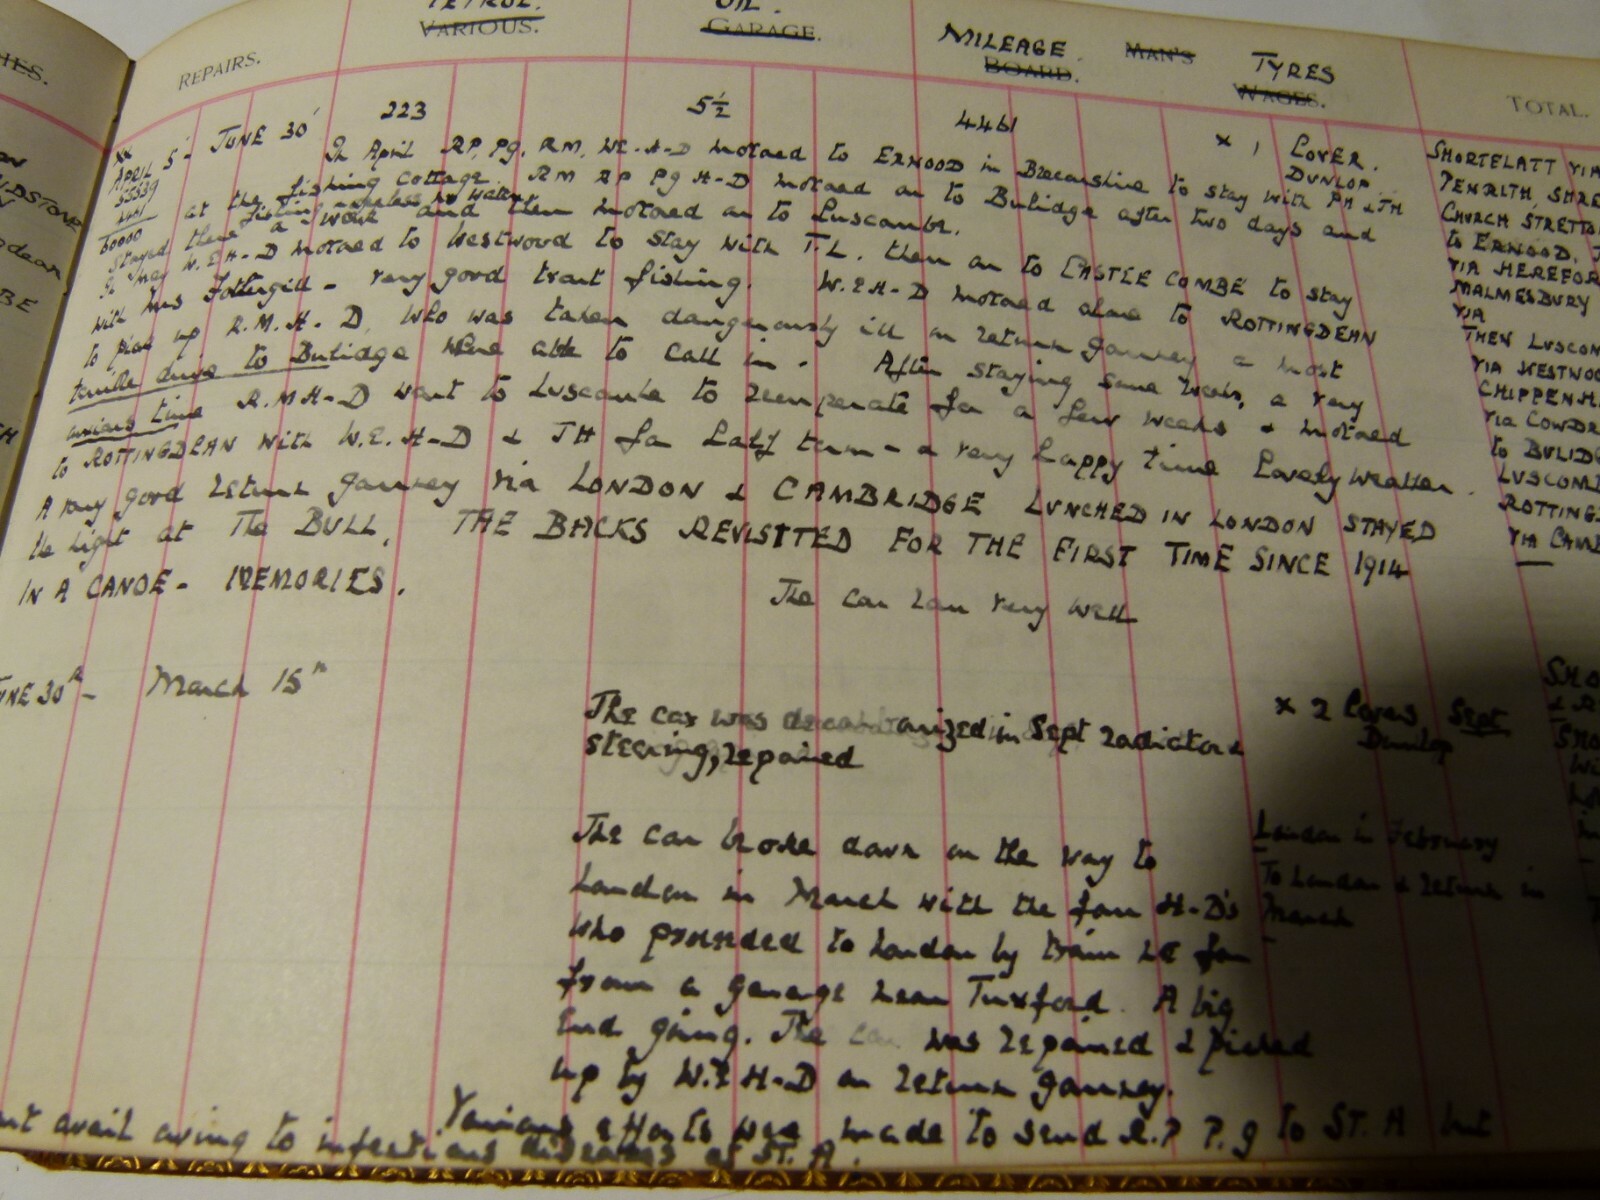 HES.
REPAIRS.
PETROL.
VARIOUS.
OIL.
GARAGE.
MILEAGE
BOARD.
MAN'S
TYRES
WAGES.
TOTAL.
XX
APRIL 5 - JUNE 30
223
5½
4461
x 1 COVER.
DUNLOP
55539
4461
60000
In April RP, PG, RM, WE-H-D motored to ERWOOD in Breconshire to stay with PH & JH
at the fishing cottage. RM RP PG H-D motored on to Bulidge after two days and
fishing useless no water
Stayed there a week and then motored on to Luscombe.
In May W.E.H-D motored to Westwood to stay with T.L. then on to CASTLE COMBE to stay
with Mrs Fothergill - very good trout fishing. W.E.H-D motored alone to ROTTINGDEAN
to pick up R.M.H-D. who was taken dangerously ill on return journey a most
terrible drive to Bulidge were able to call in. After staying some weeks, a very
anxious time R.M.H-D went to Luscombe to recuperate for a few weeks & motored
to ROTTINGDEAN with W.E.H-D & JH for half term - a very happy time lovely weather.
A very good return journey via LONDON & CAMBRIDGE LUNCHED IN LONDON STAYED
the night at The BULL, THE BACKS REVISITED FOR THE FIRST TIME SINCE 1914
IN A CANOE - MEMORIES.
The car ran very well
SHORTFLATT VIA
PENRITH, SHRE
CHURCH STRETTO
to ERWOOD,
VIA HEREFOR
MALMESBURY
VIA
THEN LUSCOM
VIA WESTWOO
CHIPPENH
via COWDR
to BULID
LUSCOMB
ROTTING
VIA CAMB
JUNE 30th - March 15th
The car was decarbonized in Sept radiator &
steering, repaired
x 2 Covers Sept
Dunlop
The car broke down on the way to
London in March with the four H-D's
who proceeded to London by train LE for
from a garage near Tuxford. A big
end going. The car was repaired & picked
up by W.E H-D on return journey.
London in February
To London & return in
March
Various efforts were made to send R.P P.G to ST. A but
out avail owing to infectious diseases at ST. A.